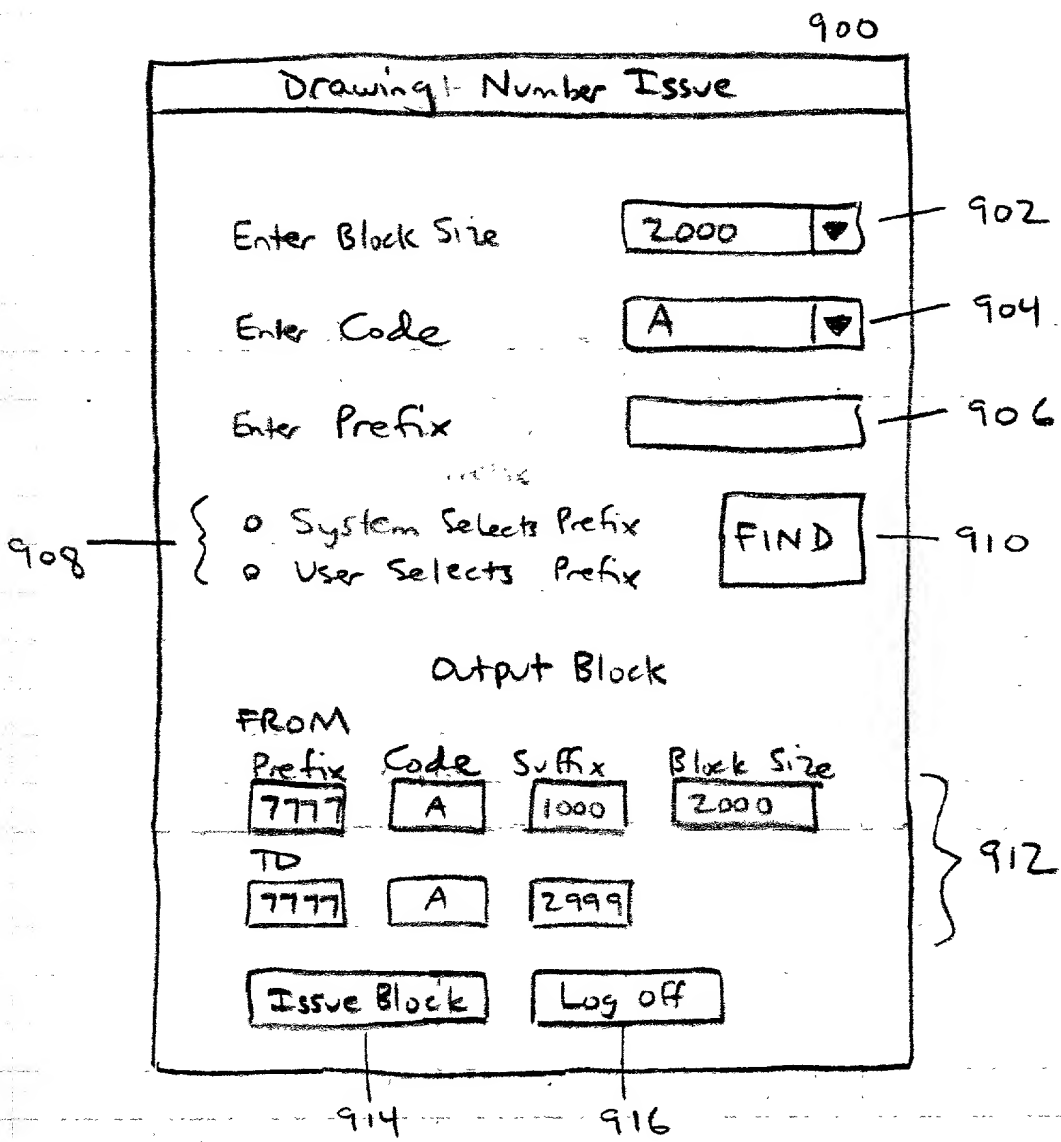 900
Drawing Number Issue
Enter Block Size 2000 902
Enter Code A 904
Enter Prefix 906
System Selects Prefix
User Selects Prefix
FIND 910
908
Output Block
FROM
Prefix Code Suffix Block Size
7777 A 1000 2000
TO
7777 A 2999
912
Issue Block Log off
914 916